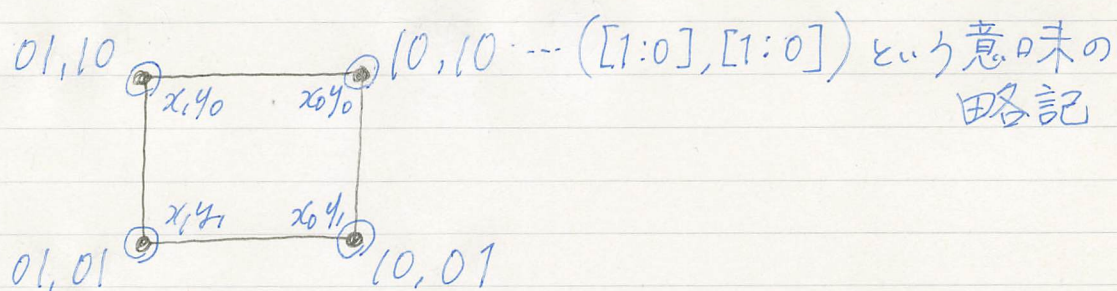 01,10 10,10 … ([1:0],[1:0]) という意味の
略記
x₁y₀ x₀y₀
x₁y₁ x₀y₁
01,01 10,01